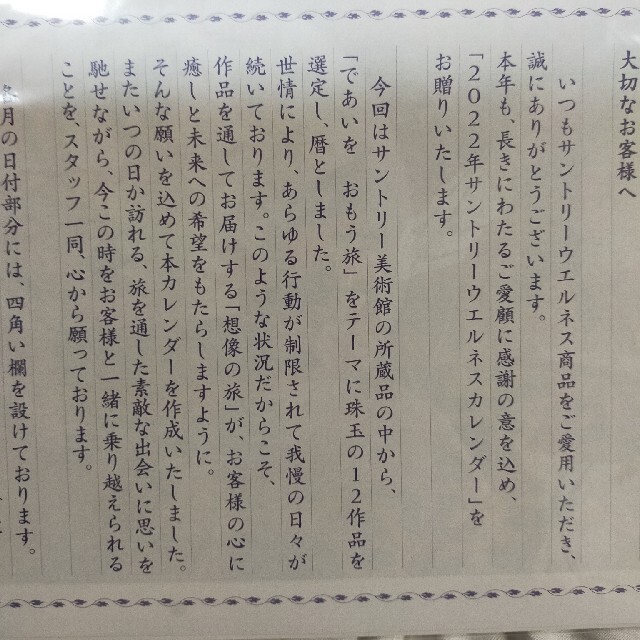 大切なお客様へ
いつもサントリーウエルネス商品をご愛用いただき、
誠にありがとうございます。
本年も、長きにわたるご愛顧に感謝の意を込め、
「2022年サントリーウエルネスカレンダー」を
お贈りいたします。
今回はサントリー美術館の所蔵品の中から、
「であいを　おもう旅」をテーマに珠玉の12作品を
選定し、暦としました。
世情により、あらゆる行動が制限されて我慢の日々が
続いております。このような状況だからこそ、
作品を通してお届けする「想像の旅」が、お客様の心に
癒しと未来への希望をもたらしますように。
そんな願いを込めて本カレンダーを作成いたしました。
またいつの日か訪れる、旅を通した素敵な出会いに思いを
馳せながら、今この時をお客様と一緒に乗り越えられる
ことを、スタッフ一同、心から願っております。
各月の日付部分には、四角い欄を設けております。